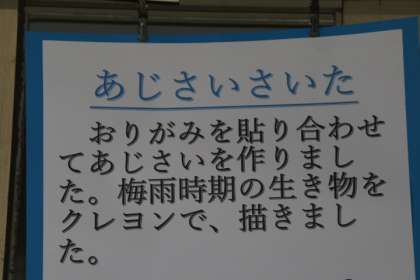 あじさいさいた
おりがみを貼り合わせ
てあじさいを作りまし
た。梅雨時期の生き物を
クレヨンで、描きまし
た。